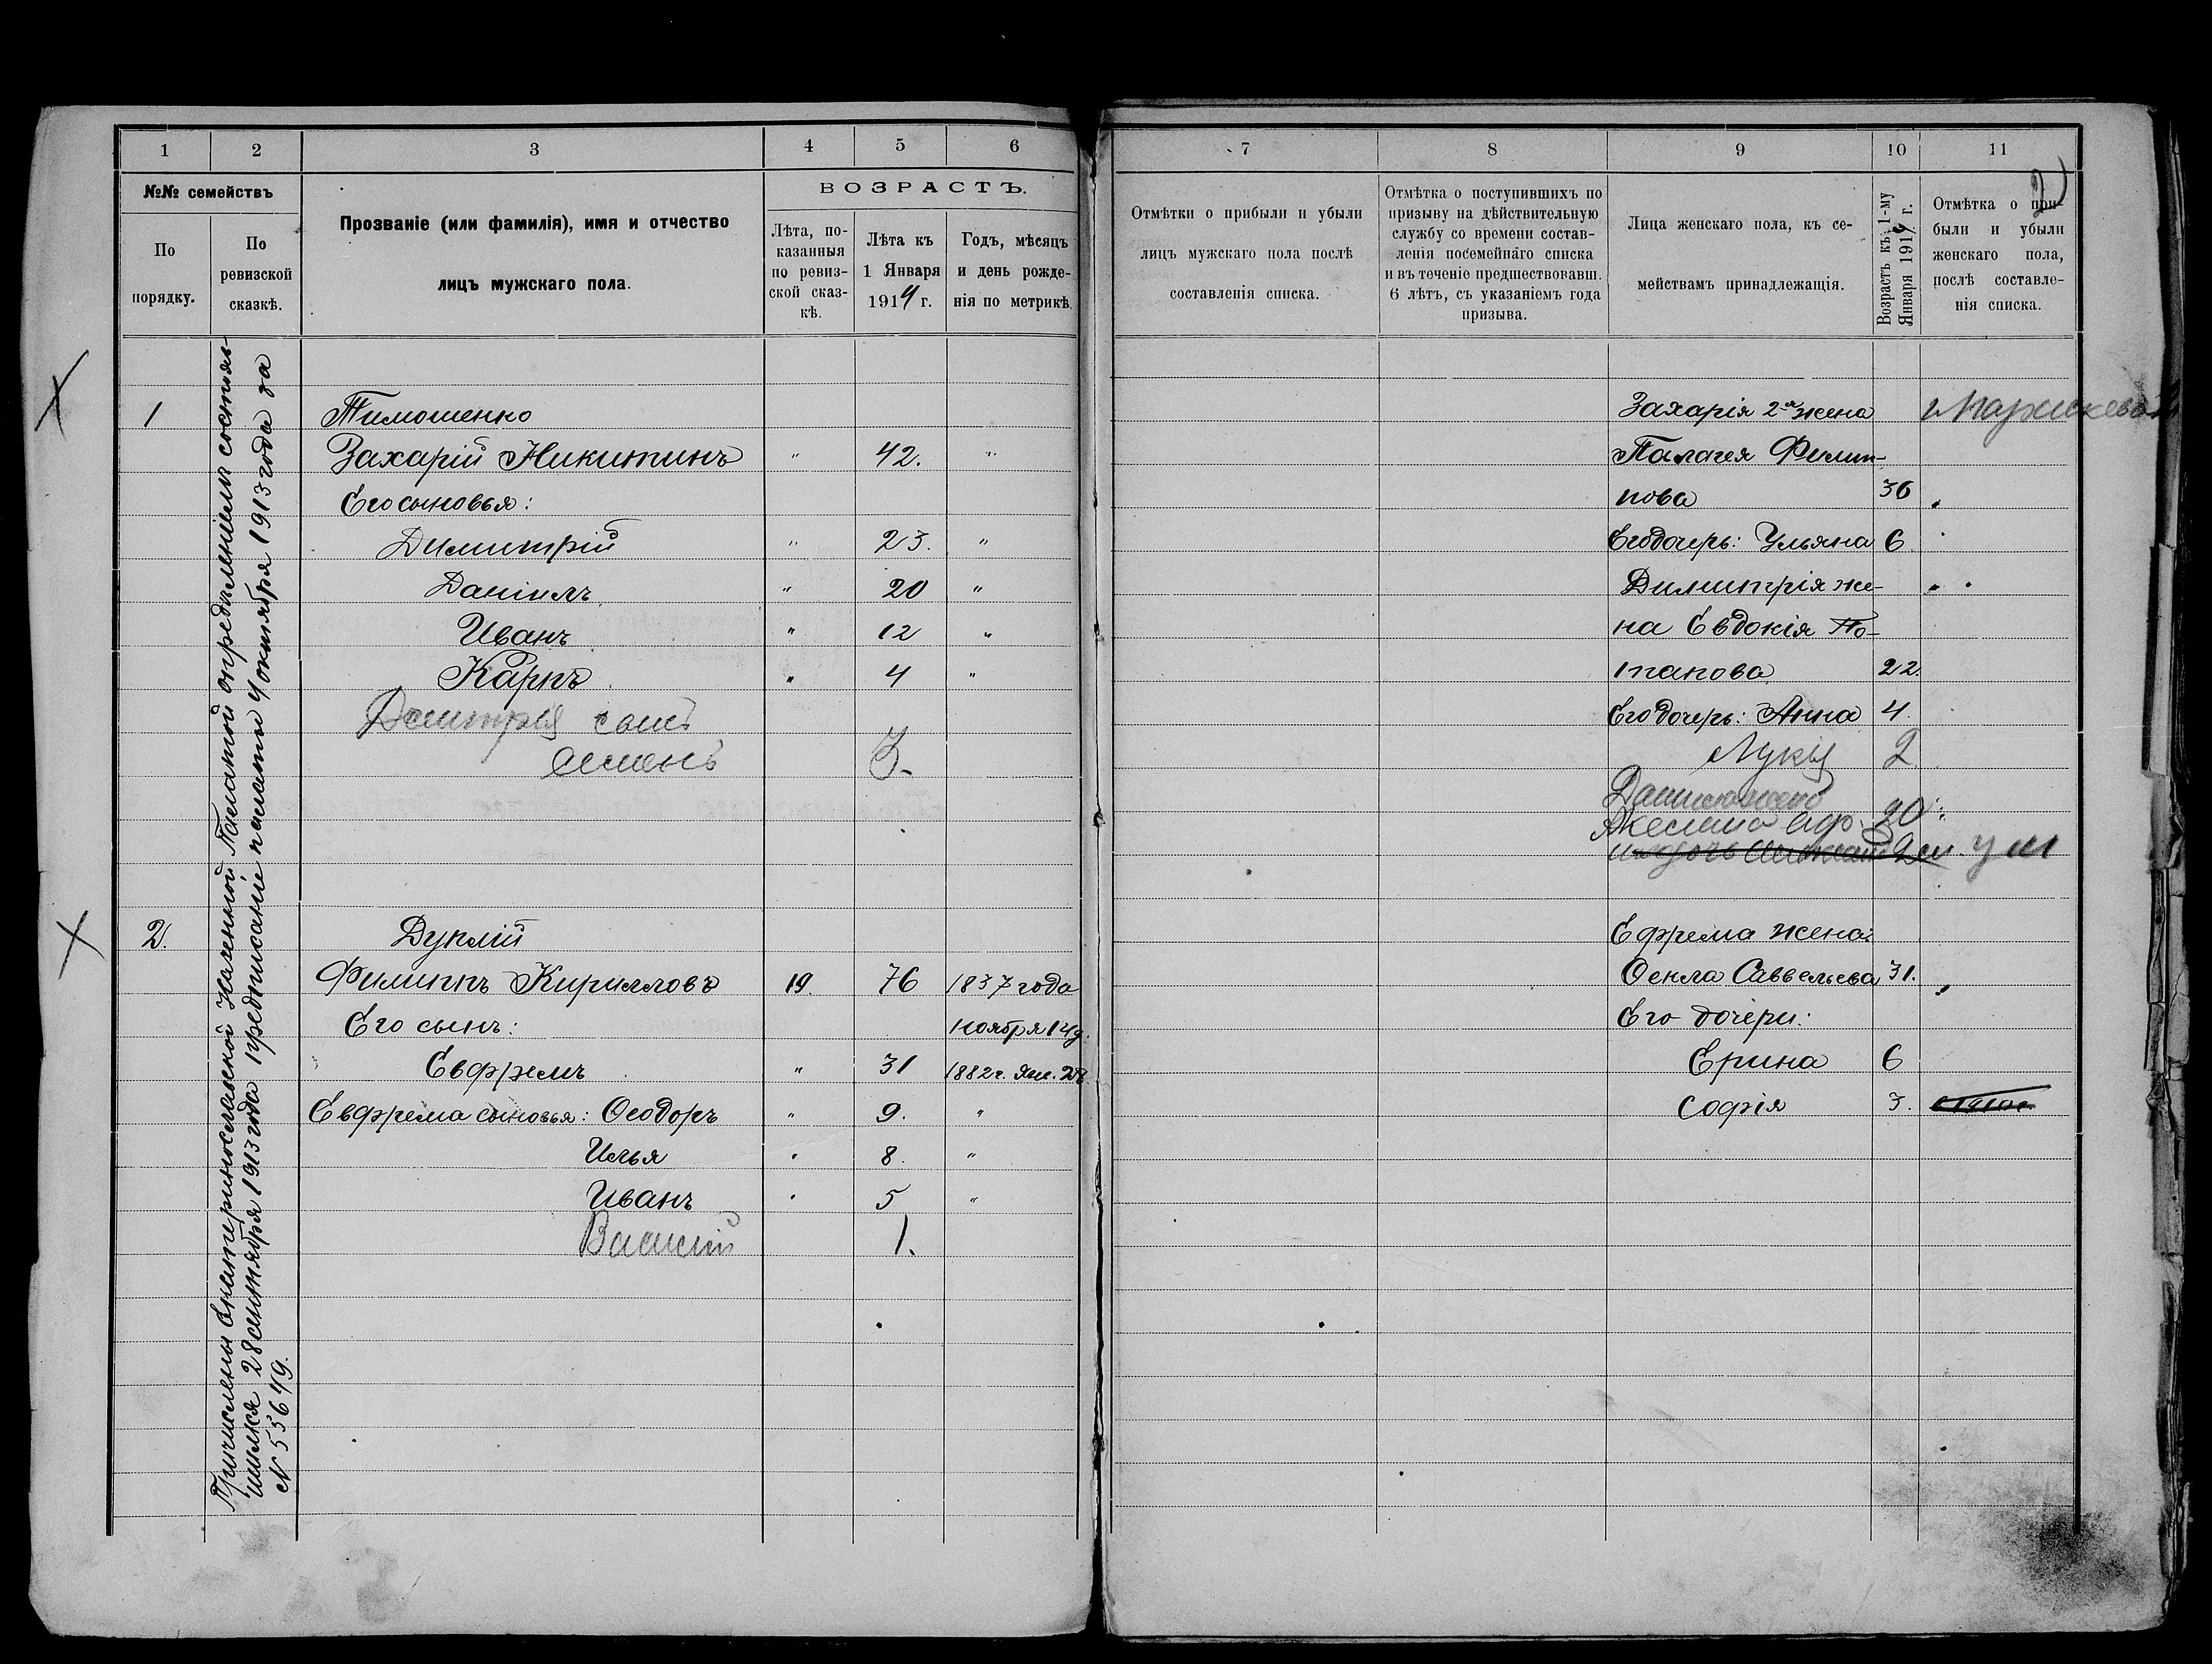 1 2 3 4 5 6
№№ семействъ
По порядку.
По ревизской сказкѣ.
Прозваніе (или фамилія), имя и отчество
лицъ мужскаго пола.
ВОЗРАСТЪ.
Лѣта, по-
казанныя
по ревиз-
ской сказ-
кѣ.
Лѣта къ
1 Января
1914 г.
Годъ, мѣсяцъ
и день рожде-
нія по метрикѣ.
Причислены Екатеринославской Казенной Палатой опредѣленіемъ состояв-
шимся 28 сентября 1913 года предписаніе палаты 4 октября 1913 года за
№ 55649.
1 Тимошенко
Захарій Никитинъ " 42. "
Его сыновья:
Димитрій " 23. "
Даніилъ " 20 "
Иванъ " 12 "
Карпъ " 4 "
Дмитрія сынъ
Семенъ 3.
2. Дуплій
Филиппъ Кирилловъ 19. 76 1837 года
Его сынъ: ноября 14 д.
Евфремъ " 31 1882 г. Янв. 28
Евфрема сыновья: Ѳеодоръ " 9. "
Илья " 8. "
Иванъ " 5 "
Василій 1.
7 8 9 10 11
2
Отмѣтки о прибыли и убыли
лицъ мужскаго пола послѣ
составленія списка.
Отмѣтка о поступившихъ по
призыву на дѣйствительную
службу со времени состав-
ленія посемейнаго списка
и въ теченіе предшествовавш.
6 лѣтъ, съ указаніемъ года
призыва.
Лица женскаго пола, къ се-
мействамъ принадлежащія.
Возрастъ къ 1-му
Января 1914 г.
Отмѣтка о при-
были и убыли
женскаго пола,
послѣ составле-
нія списка.
Захарія 2-я жена
Палагея Филип-
пова 36
Его дочерь: Ульяна 6
Димитрія же-
на Евдокія По-
тапова 22.
Его дочерь: Анна 4.
Лукія 2
20
Ефрема жена:
Ѳекла Саввельева 31.
Его дочери:
Ерина 6
Софія 3.